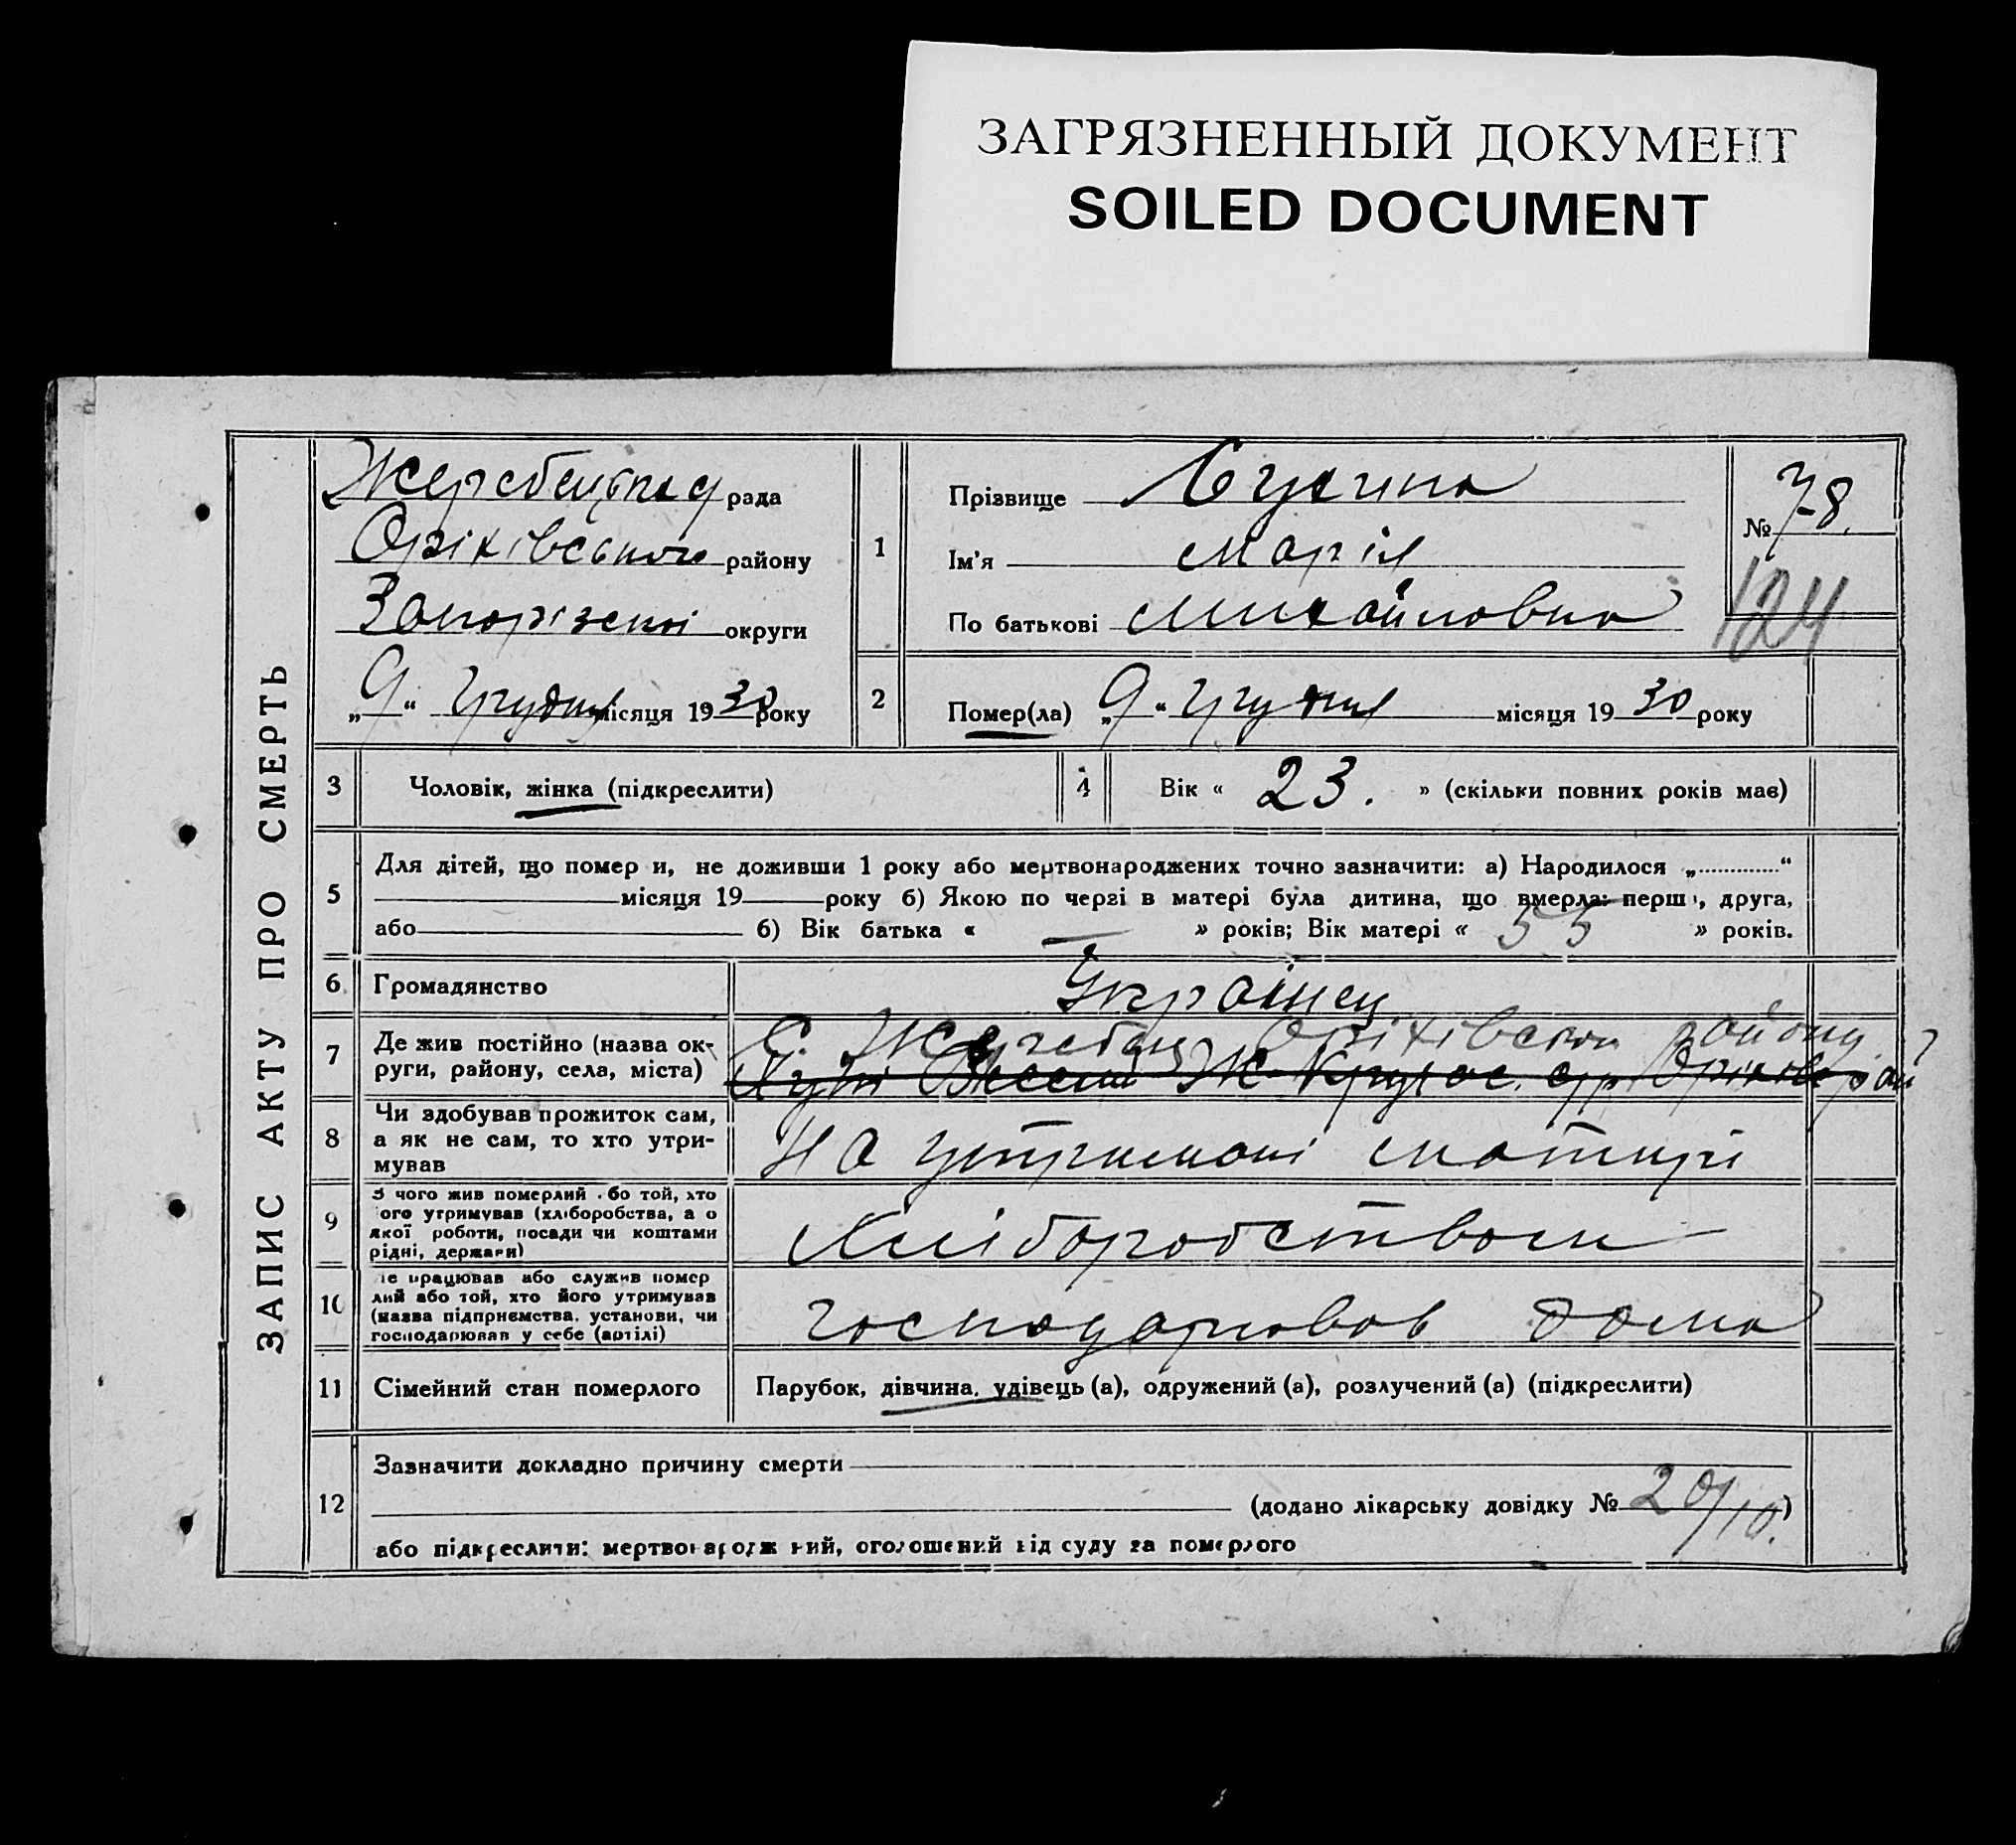 ЗАГРЯЗНЕННЫЙ ДОКУМЕНТ
SOILED DOCUMENT
ЗАПИС АКТУ ПРО СМЕРТЬ
Жеребецька рада
Оріхівського району
Запорізької округи
„9“ грудня місяця 1930 року
1
Прізвище
Ім'я Марія
По батькові Михайловна
№ 78.
124
2
Помер(ла) „9“ грудня місяця 1930 року
3 Чоловік, жінка (підкреслити)
4 Вік « 23. » (скільки повних років має)
5
Для дітей, що помер и, не доживши 1 року або мертвонароджених точно зазначити: а) Народилося „.............“
місяця 19 року б) Якою по черзі в матері була дитина, що вмерла: перш , друга,
або б) Вік батька « — » років; Вік матері « 55 » років.
6. Громадянство Українец
7 Де жив постійно (назва ок-
руги, району, села, міста)
С. Жеребець Оріхівськ району
8
Чи здобував прожиток сам,
а як не сам, то хто утри-
мував
На утримані матирі
9
З чого жив померлий бо той, хто
ого утримував (хліборобства, а о
якої роботи, посади чи коштами
рідні, держави)
Хліборобством
10
е працював або служив помер
лий або той, хто його утримував
(назва підприємства, установи, чи
господарював у себе (артілі)
господарював дома
11 Сімейний стан померлого Парубок, дівчина, удівець (а), одружений (а), розлучений (а) (підкреслити)
12
Зазначити докладно причину смерти
(додано лікарську довідку № 20/10.)
або підкреслити: мертвонародж ний, оголошений від суду за померлого